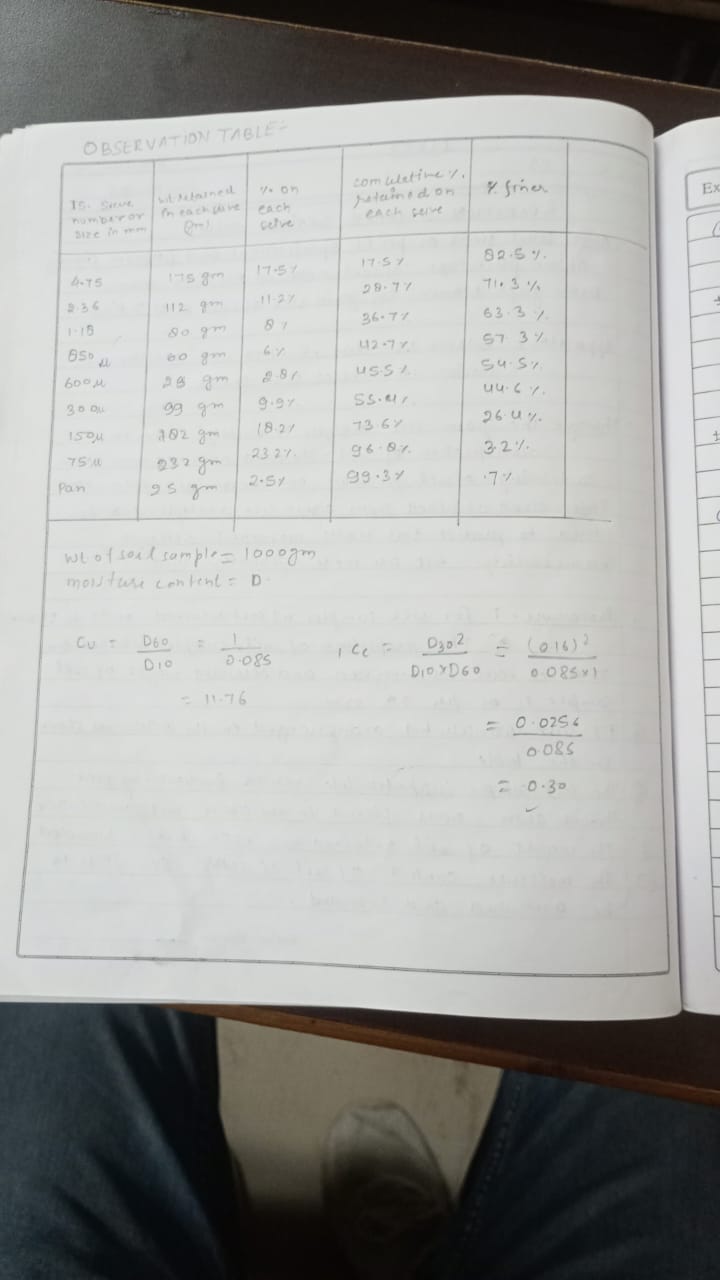 OBSERVATION TABLE:-
IS. Seive number or size in mm | wt retained in each seive (gm) | % on each seive | comulative %. retained on each seive | % finer
4.75 | 175 gm | 17.5% | 17.5% | 82.5 %.
2.36 | 112 gm | 11.2% | 28.7% | 71.3 %
1.18 | 80 gm | 8% | 36.7% | 63.3 %.
850 μ | 60 gm | 6% | 42.7% | 57.3 %
600 μ | 28 gm | 2.8% | 45.5 %. | 54.5%
300 μ | 99 gm | 9.9% | 55.4% | 44.6 %.
150 μ | 182 gm | 18.2% | 73.6% | 26.4 %.
75 μ | 232 gm | 23.2%. | 96.8% | 3.2%.
Pan | 25 gm | 2.5% | 99.3% | .7%
wt of soil sample = 1000gm
moisture content = D
Cu = D60 / D10 = 1 / 0.085 , Cc = D30² / D10 x D60 = (0.16)² / 0.085 x 1
= 11.76
= 0.0256 / 0.085
= 0.30
Ex